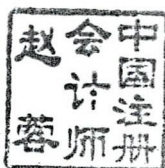 中国注册
会计师
赵蓉